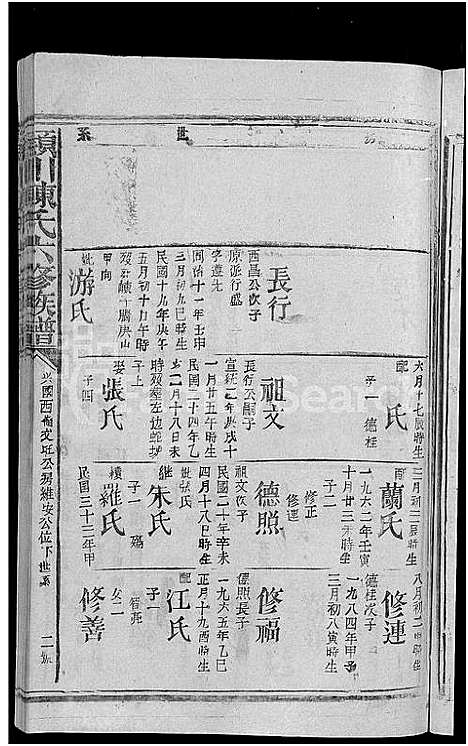 世系
長行
西昌公次子
原派行盛
字遵先
同治十一年壬申
三月初九巳時生
民國十九年庚午
五月初十日午時
甲向
妣
游氏
六月十七辰時生
配
氏
子一 德桂
祖文
長行公嗣子
宣統二年庚戌十
一月廿五午時生
民國三十四年
十二月十八日未
子上
娶
張氏
子四
三月初二辰時生
配
蘭氏
一九六二年壬寅
十月廿三未時生
子二
修正
修連
德照
祖文次子
民國二十年辛未
四月十八巳時生
妣張氏
繼
朱氏
子一
續
羅氏
民國三十三年甲
八月初二時生
修連
德桂次子
一九八四年甲子
三月初八寅時生
修福
德照長子
一九六五年乙巳
正月十九酉時生
配
江氏
子一
女二
修善
潁川陳氏六修族譜
興國西
公房維安公位下世系